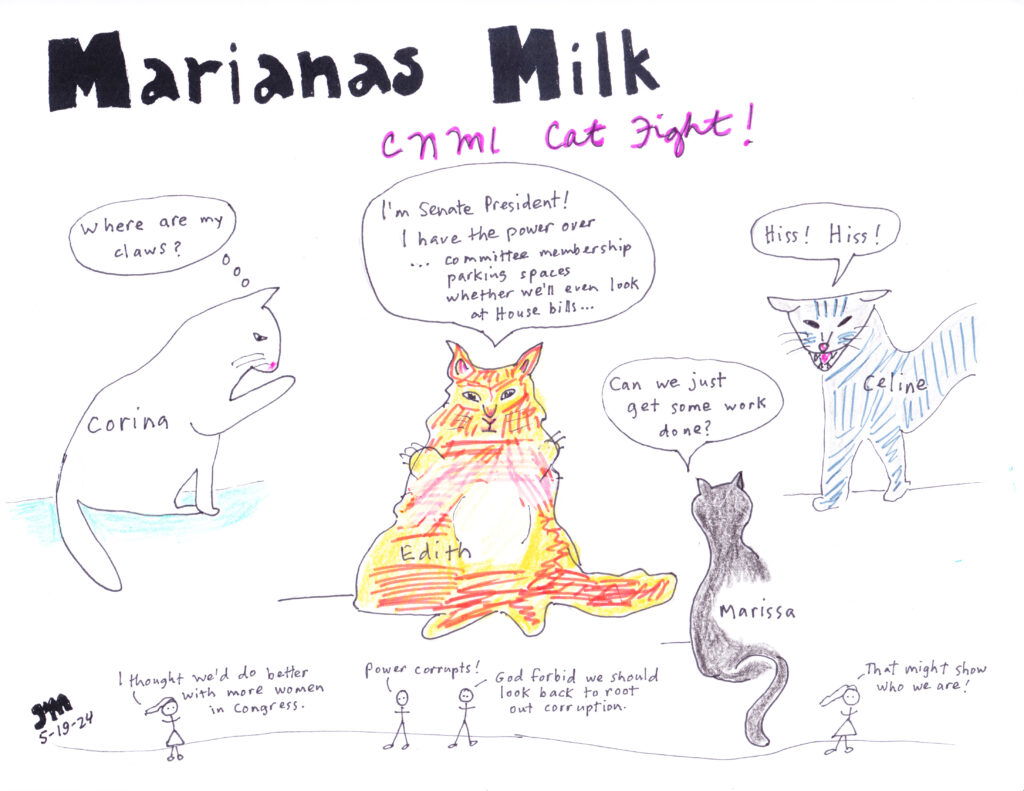 Marianas Milk
CNMI Cat Fight!
Where are my
claws?
I'm Senate President!
I have the power over
... committee membership
parking spaces
whether we'll even look
at House bills...
Hiss! Hiss!
Can we just
get some work
done?
Corina
Edith
Celine
Marissa
I thought we'd do better
with more women
in Congress.
Power corrupts!
God forbid we should
look back to root
out corruption.
That might show
who we are!
5-19-24